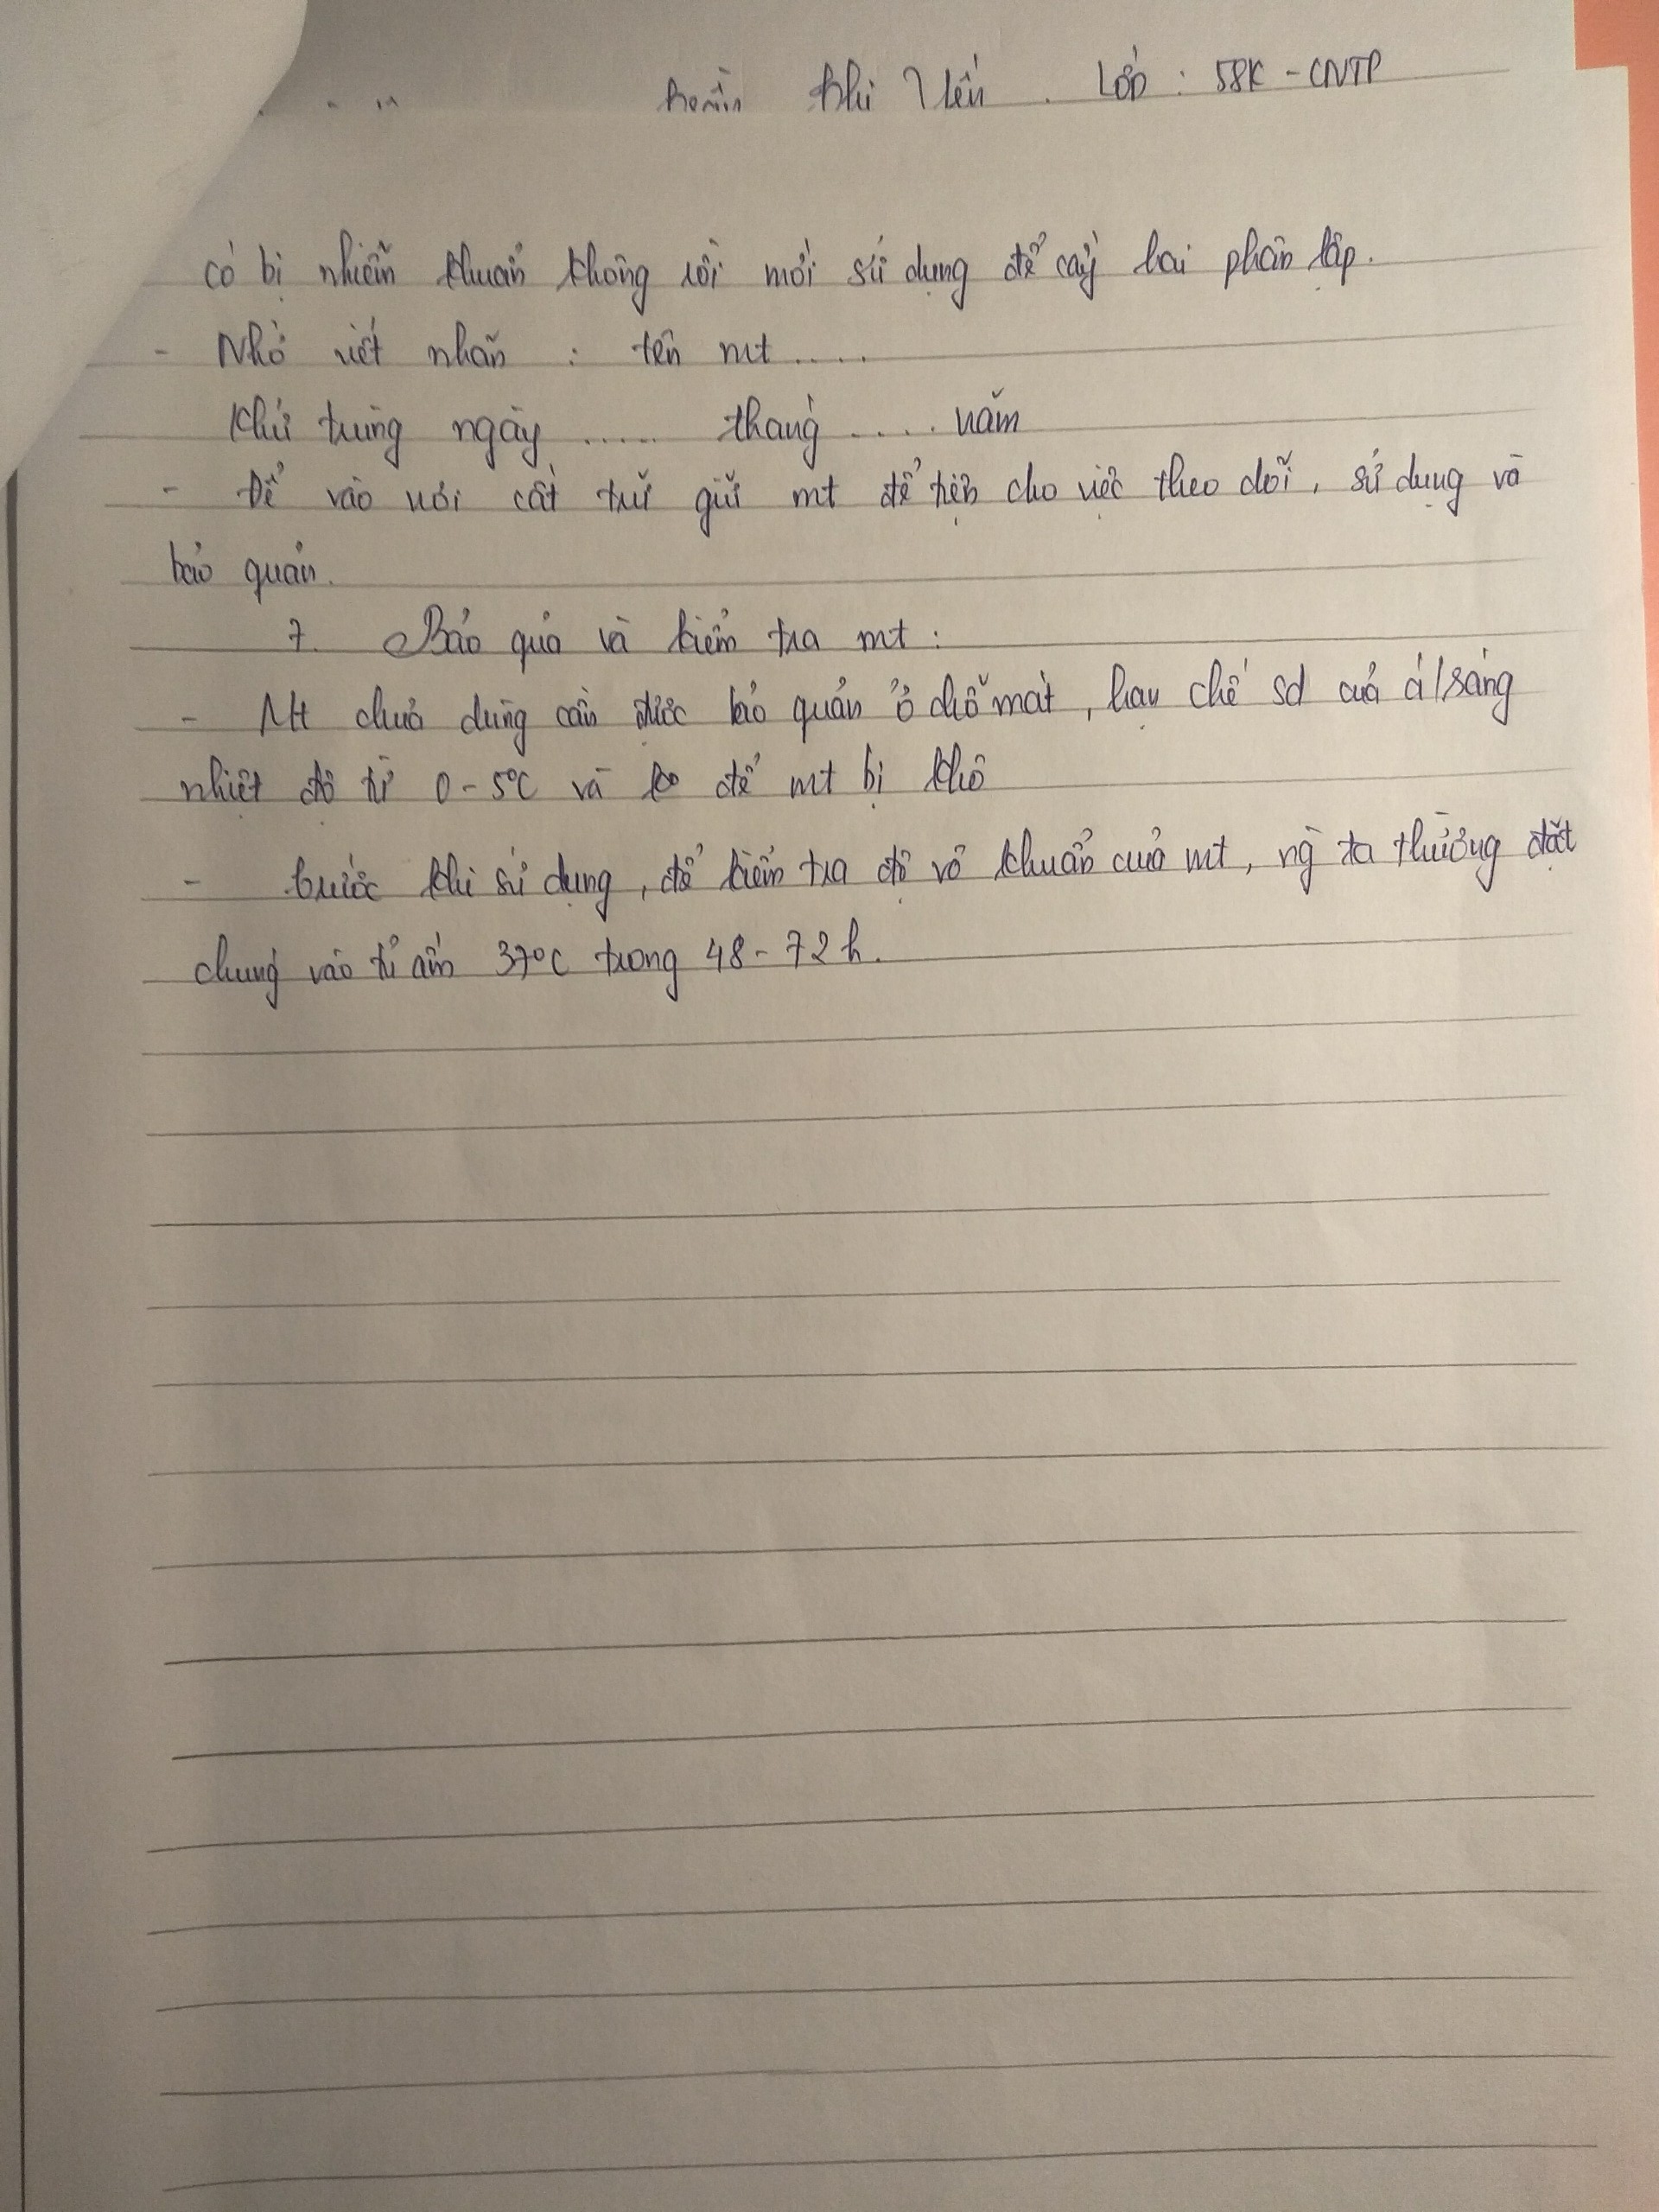 Thị Yến . Lớp : 58K - CNTP
có bị nhiễm khuẩn không rồi mới sử dụng để cấy hai phân lập.
- Nhớ viết nhãn : tên mt ....
Khử trùng ngày ..... tháng .... năm
- Để vào nơi cất trữ giữ mt để tiện cho việc theo dõi, sử dụng và
bảo quản.
7. Bảo quả và kiểm tra mt :
- Mt chưa dùng cần được bảo quản ở chỗ mát, hạn chế sd của á/sáng
nhiệt độ từ 0 - 5°C và ko để mt bị khô
- Trước khi sử dụng, để kiểm tra độ vô khuẩn của mt, ng ta thường đặt
chúng vào tủ ấm 37°C trong 48 - 72 h.